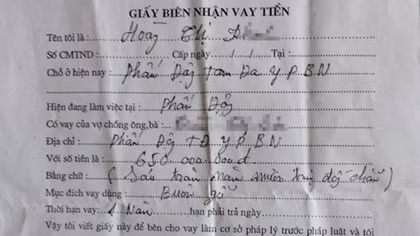 GIẤY BIÊN NHẬN VAY TIỀN
Tên tôi là : Hoàng Thị
Số CMTND : Cấp ngày / / Tại :
Chỗ ở hiện nay : Phấn Động Tam Đa Y P B.N
Hiện đang làm việc tại : Phấn Động
Có vay của vợ chồng ông,bà :
Địa chỉ : Phấn Động TĐ Y P. B N
Với số tiền là : 650.000.000đ
Bằng chữ : ( Sáu trăm năm mươi triệu đồng chẵn )
Mục đích vay dùng : Buôn gỗ
Thời hạn vay : 1 Năm hạn phải trả ngày
Vậy tôi viết giấy này để bên cho vay làm cơ sở pháp lý trước pháp luật và tôi